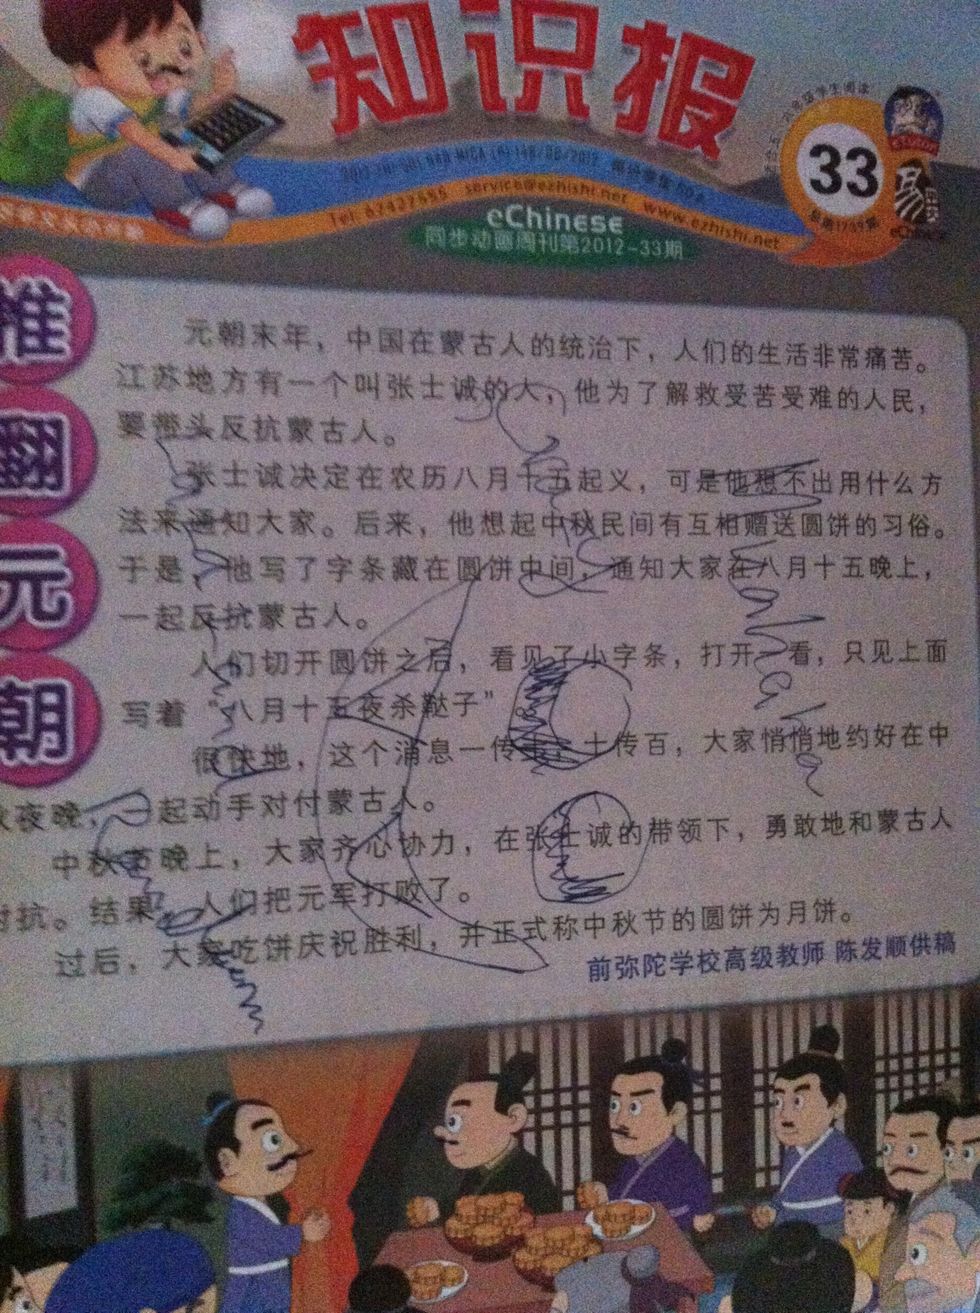 知识报
33
Tel: 62422555 service@ezhishi.net www.ezhishi.net
eChinese
同步动画周刊第2012-33期
推翻元朝
元朝末年，中国在蒙古人的统治下，人们的生活非常痛苦。
江苏地方有一个叫张士诚的人，他为了解救受苦受难的人民，
要带头反抗蒙古人。
张士诚决定在农历八月十五起义，可是他想不出用什么方
法来通知大家。后来，他想起中秋民间有互相赠送圆饼的习俗。
于是，他写了字条藏在圆饼中间，通知大家在八月十五晚上，
一起反抗蒙古人。
人们切开圆饼之后，看见了小字条，打开一看，只见上面
写着“八月十五夜杀鞑子”
很快地，这个消息一传十，十传百，大家悄悄地约好在中
秋夜晚，一起动手对付蒙古人。
中秋节晚上，大家齐心协力，在张士诚的带领下，勇敢地和蒙古人
对抗。结果，人们把元军打败了。
过后，大家吃饼庆祝胜利，并正式称中秋节的圆饼为月饼。
前弥陀学校高级教师 陈发顺供稿